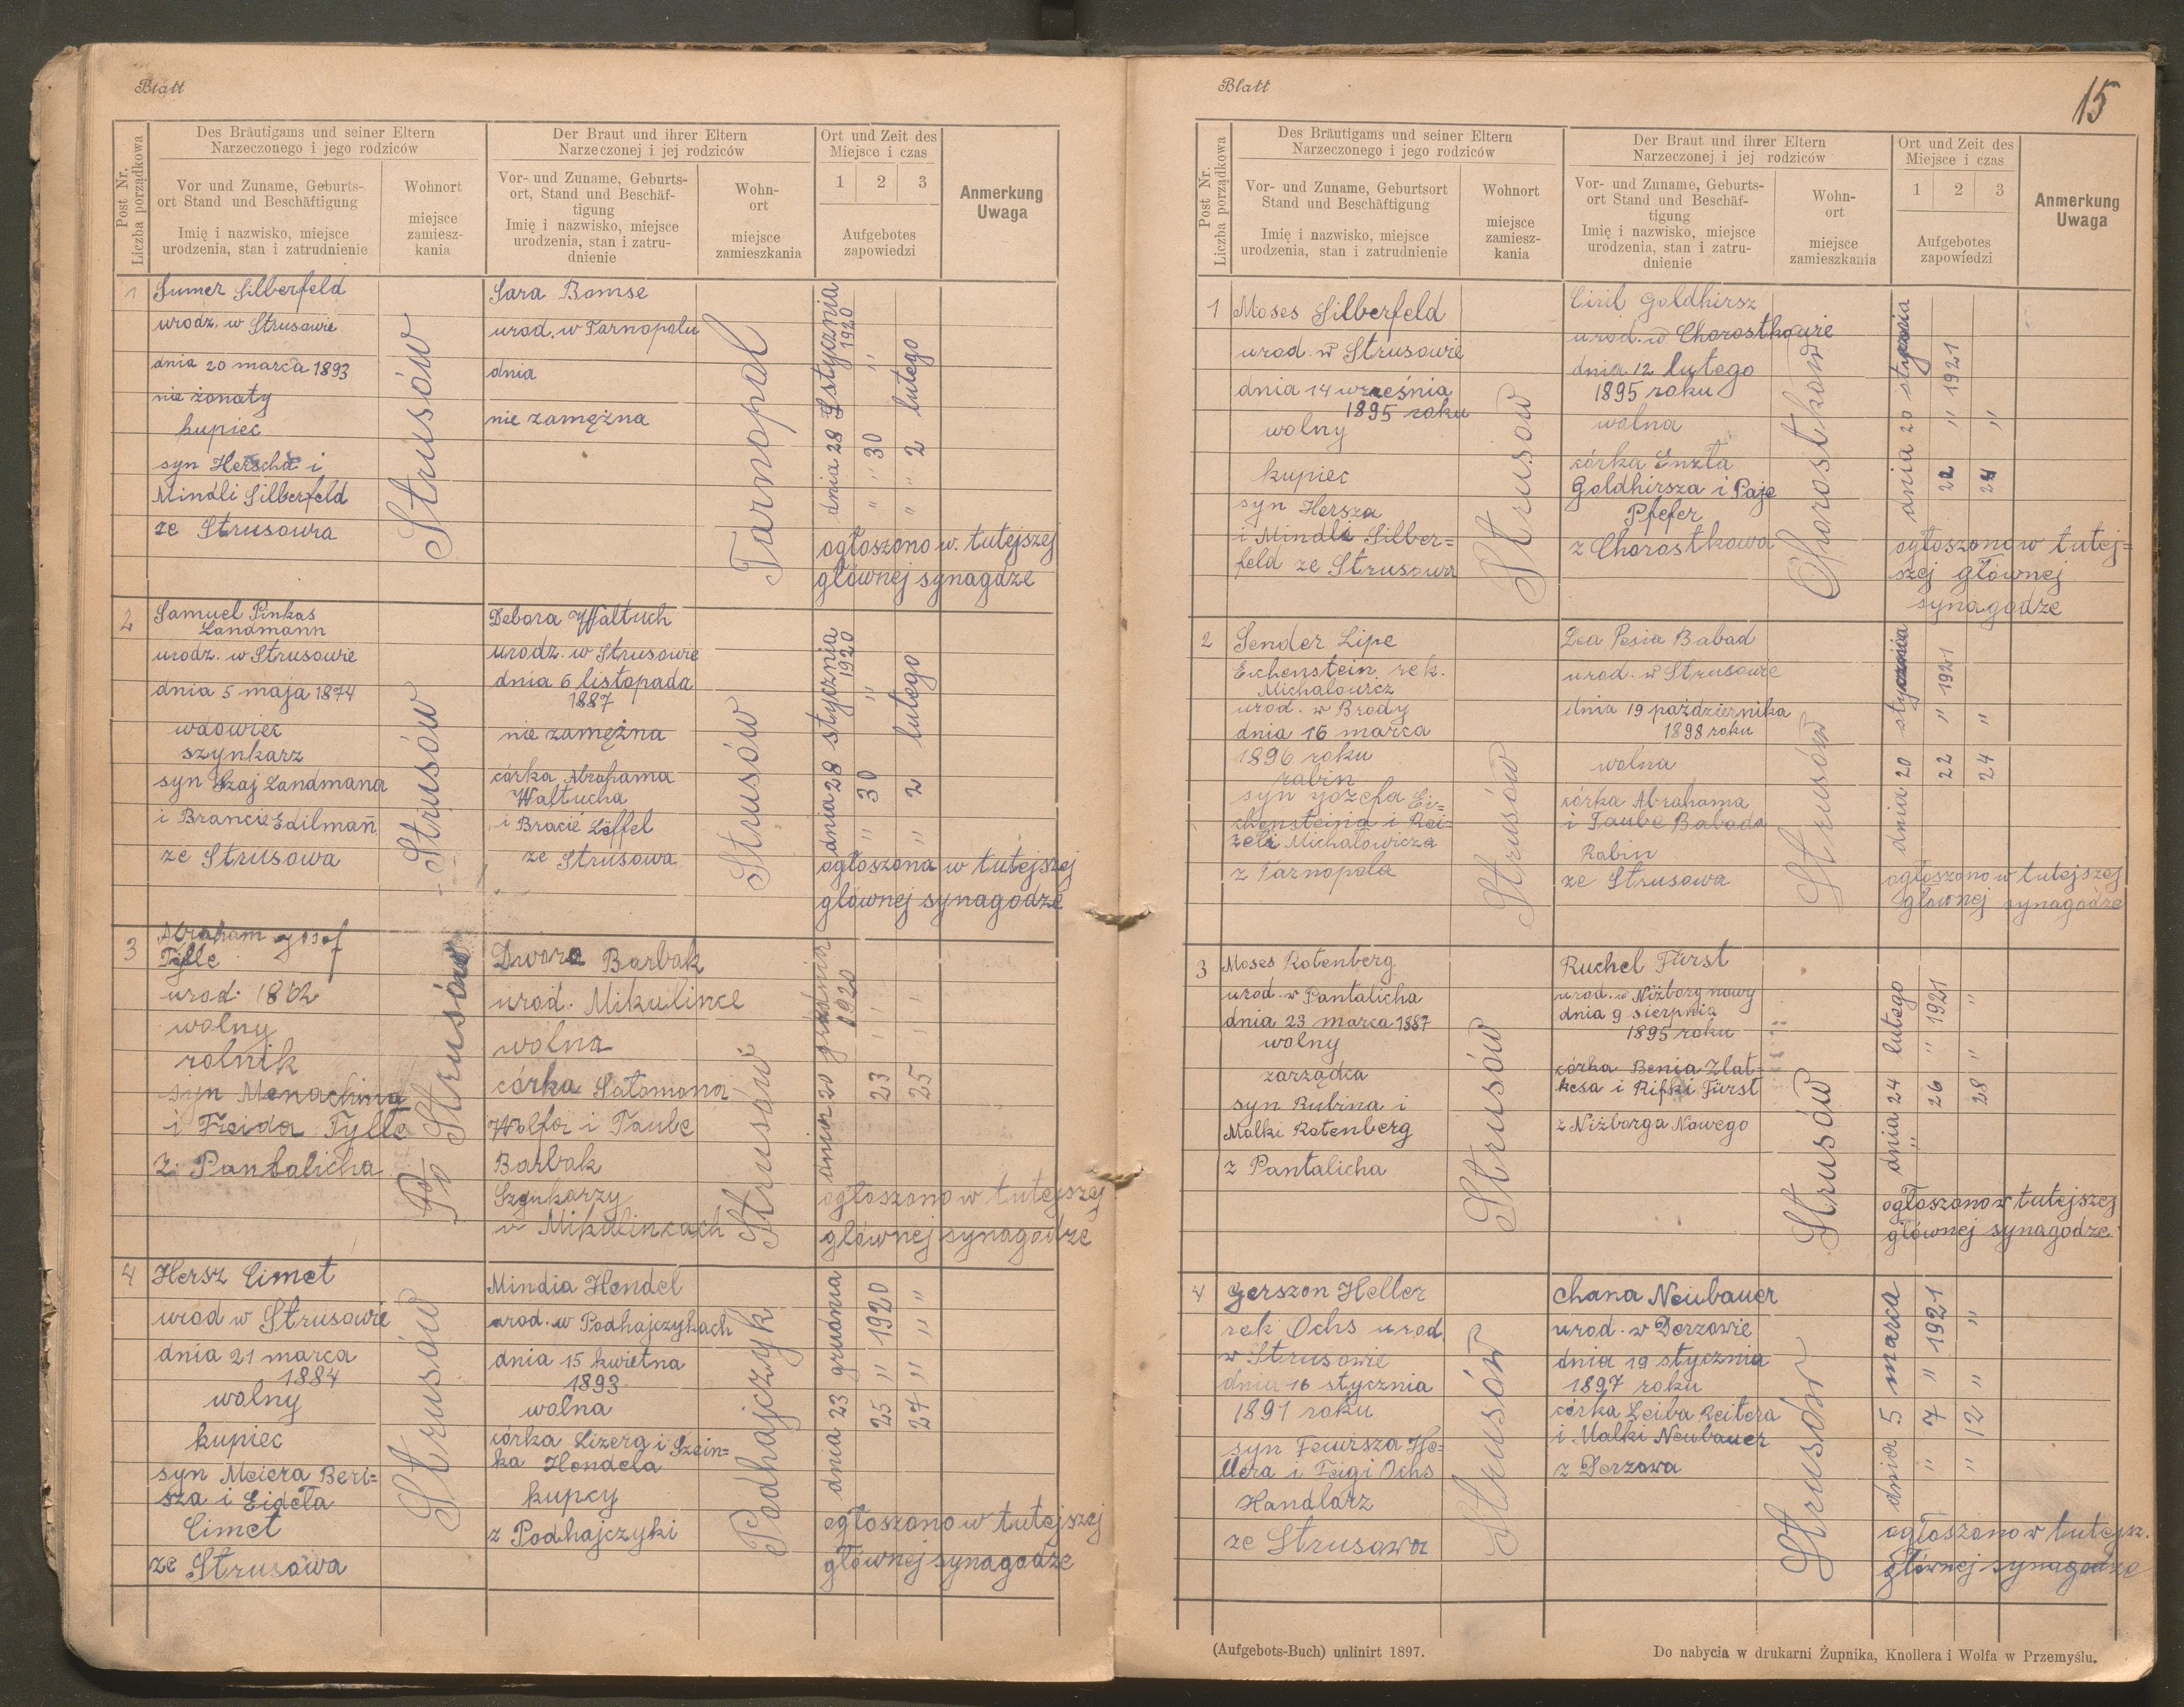 Blatt
Post Nr.
Liczba porządkowa
Des Bräutigams und seiner Eltern
Narzeczonego i jego rodziców
Vor und Zuname, Geburts-
ort Stand und Beschäftigung
Imię i nazwisko, miejsce
urodzenia, stan i zatrudnienie
Wohnort
miejsce
zamiesz-
kania
Der Braut und ihrer Eltern
Narzeczonej i jej rodziców
Vor- und Zuname, Geburts-
ort, Stand und Beschäf-
tigung
Imię i nazwisko, miejsce
urodzenia, stan i zatru-
dnienie
Wohn-
ort
miejsce
zamieszkania
Ort und Zeit des
Miejsce i czas
1 2 3
Aufgebotes
zapowiedzi
Anmerkung
Uwaga
1
Sumer Silberfeld
urodz. w Strusowie
dnia 20 marca 1893
nie żonaty
kupiec
syn Herscha i
Mindli Silberfeld
ze Strusowa
Strusów
Sara Bomse
urod. w Tarnopolu
dnia
nie zamężna
Tarnopol
dnia 28 stycznia
1920
" " 30 "
" " 2 lutego
ogłoszono w. tutejszej
głównej synagdze
2
Samuel Pinkas
Landmann
urodz. w Strusowie
dnia 5 maja 1874
wdowiec
szynkarz
syn Szaj Landmana
i Brancie Edilmañ
ze Strusowa
Strusów
Debora Waltuch
urodz. w Strusowie
dnia 6 listopada
1887
nie zamężna
córka Abrahama
Waltucha
i Bracie Löffel
ze Strusowa
Strusów
dnia 28 stycznia
1920
" 30 "
" 2 lutego
ogłoszona w tutejszej
głównej synagodze
3
Abraham Josef
Tylle
urod. 1862
wolny
rolnik
syn Menachima
i Freida Tylle
z Pantalicha
Strusów
Dwora Barbak
urod. Mikulince
wolna
córka Salomona
Wolfa i Taube
Barbak
Szynkarzy
w Mikulincach
Strusów
dnia 20 grudnia
1920
23 " "
25 " "
ogłoszono w tutejszej
głównej synagodze
4
Hersz Cimet
urod w Strusowie
dnia 21 marca
1884
wolny
kupiec
syn Meiera Beri=
sza i Eidela
Cimet
ze Strusowa
Strusów
Mindia Hendel
urod. w Podhajczykach
dnia 15 kwietna
1893
wolna
córka Lizera i Szein=
ka Hendela
kupcy
z Podhajczyki
Podhajczyk
dnia 23 grudnia
25 " 1920
27 " " "
ogłoszono w tutejszej
głównej synagodze
Blatt
15
Post Nr.
Liczba porządkowa
Des Bräutigams und seiner Eltern
Narzeczonego i jego rodziców
Vor- und Zuname, Geburtsort
Stand und Beschäftigung
Imię i nazwisko, miejsce
urodzenia, stan i zatrudnienie
Wohnort
miejsce
zamiesz-
kania
Der Braut und ihrer Eltern
Narzeczonej i jej rodziców
Vor- und Zuname, Geburts-
ort Stand und Beschäf-
tigung
Imię i nazwisko, miejsce
urodzenia, stan i zatru-
dnienie
Wohn-
ort
miejsce
zamieszkania
Ort und Zeit des
Miejsce i czas
1 2 3
Aufgebotes
zapowiedzi
Anmerkung
Uwaga
1
Moses Silberfeld
urod. w Strusowie
dnia 14 września
1895 roku
wolny
kupiec
syn Hersza
i Mindli Silber=
feld ze Strusowa
Strusów
Ciril Goldhirsz
urod. w Chorostkowie
dnia 12 lutego
1895 roku
wolna
córka Enzla
Goldhirsza i Paje
Pfefer
z Chorostkowa
Chorostków
dnia 20 stycznia
22 " 1921
24 "
ogłoszono w tutej=
szej głównej
synagodze
2
Sender Lipe
Eichenstein rek.
Michalowicz
urod. w Brody
dnia 16 marca
1896 roku
rabin
syn Józefa Ei=
chensteina i Rei=
zeli Michałowicza
z Tarnopola
Strusów
Lea Pesia Babad
urod. w Strusowie
dnia 19 października
1898 roku
wolna
córka Abrahama
i Taube Babada
Rabin
ze Strusowa
Strusów
dnia 20 stycznia
22 " 1921
24 "
ogłoszono w tutejszej
głównej synagodze
3
Moses Rotenberg
urod. w Pantalicha
dnia 23 marca 1887
wolny
zarządca
syn Rubina i
Malki Rotenberg
z Pantalicha
Strusów
Ruchel Fürst
urod. w Niżborg nowy
dnia 9 sierpnia
1895 roku
córka Benia Zlat=
kesa i Rifki Fürst
z Niżborga Nowego
Strusów
dnia 24 lutego
" 26 " 1921
28 " "
ogłoszono w tutejszej
głównej synagodze
4
Gerszon Heller
rek Ochs urod.
w Strusowie
dnia 16 stycznia
1891 roku
syn Feiwisza He=
llera i Feigi Ochs
Handlarz
ze Strusowa
Strusów
Chana Neubauer
urod. w Derzowie
dnia 19 stycznia
1897 roku
córka Leiba Reitera
i Malki Neubauer
z Derzowa
Strusów
dnia 5 marca
" 7 " 1921
" 12 " "
ogłoszono w tutejsz.
głównej synagodze
(Aufgebots-Buch) unlinirt 1897.
Do nabycia w drukarni Żupnika, Knollera i Wolfa w Przemyślu.